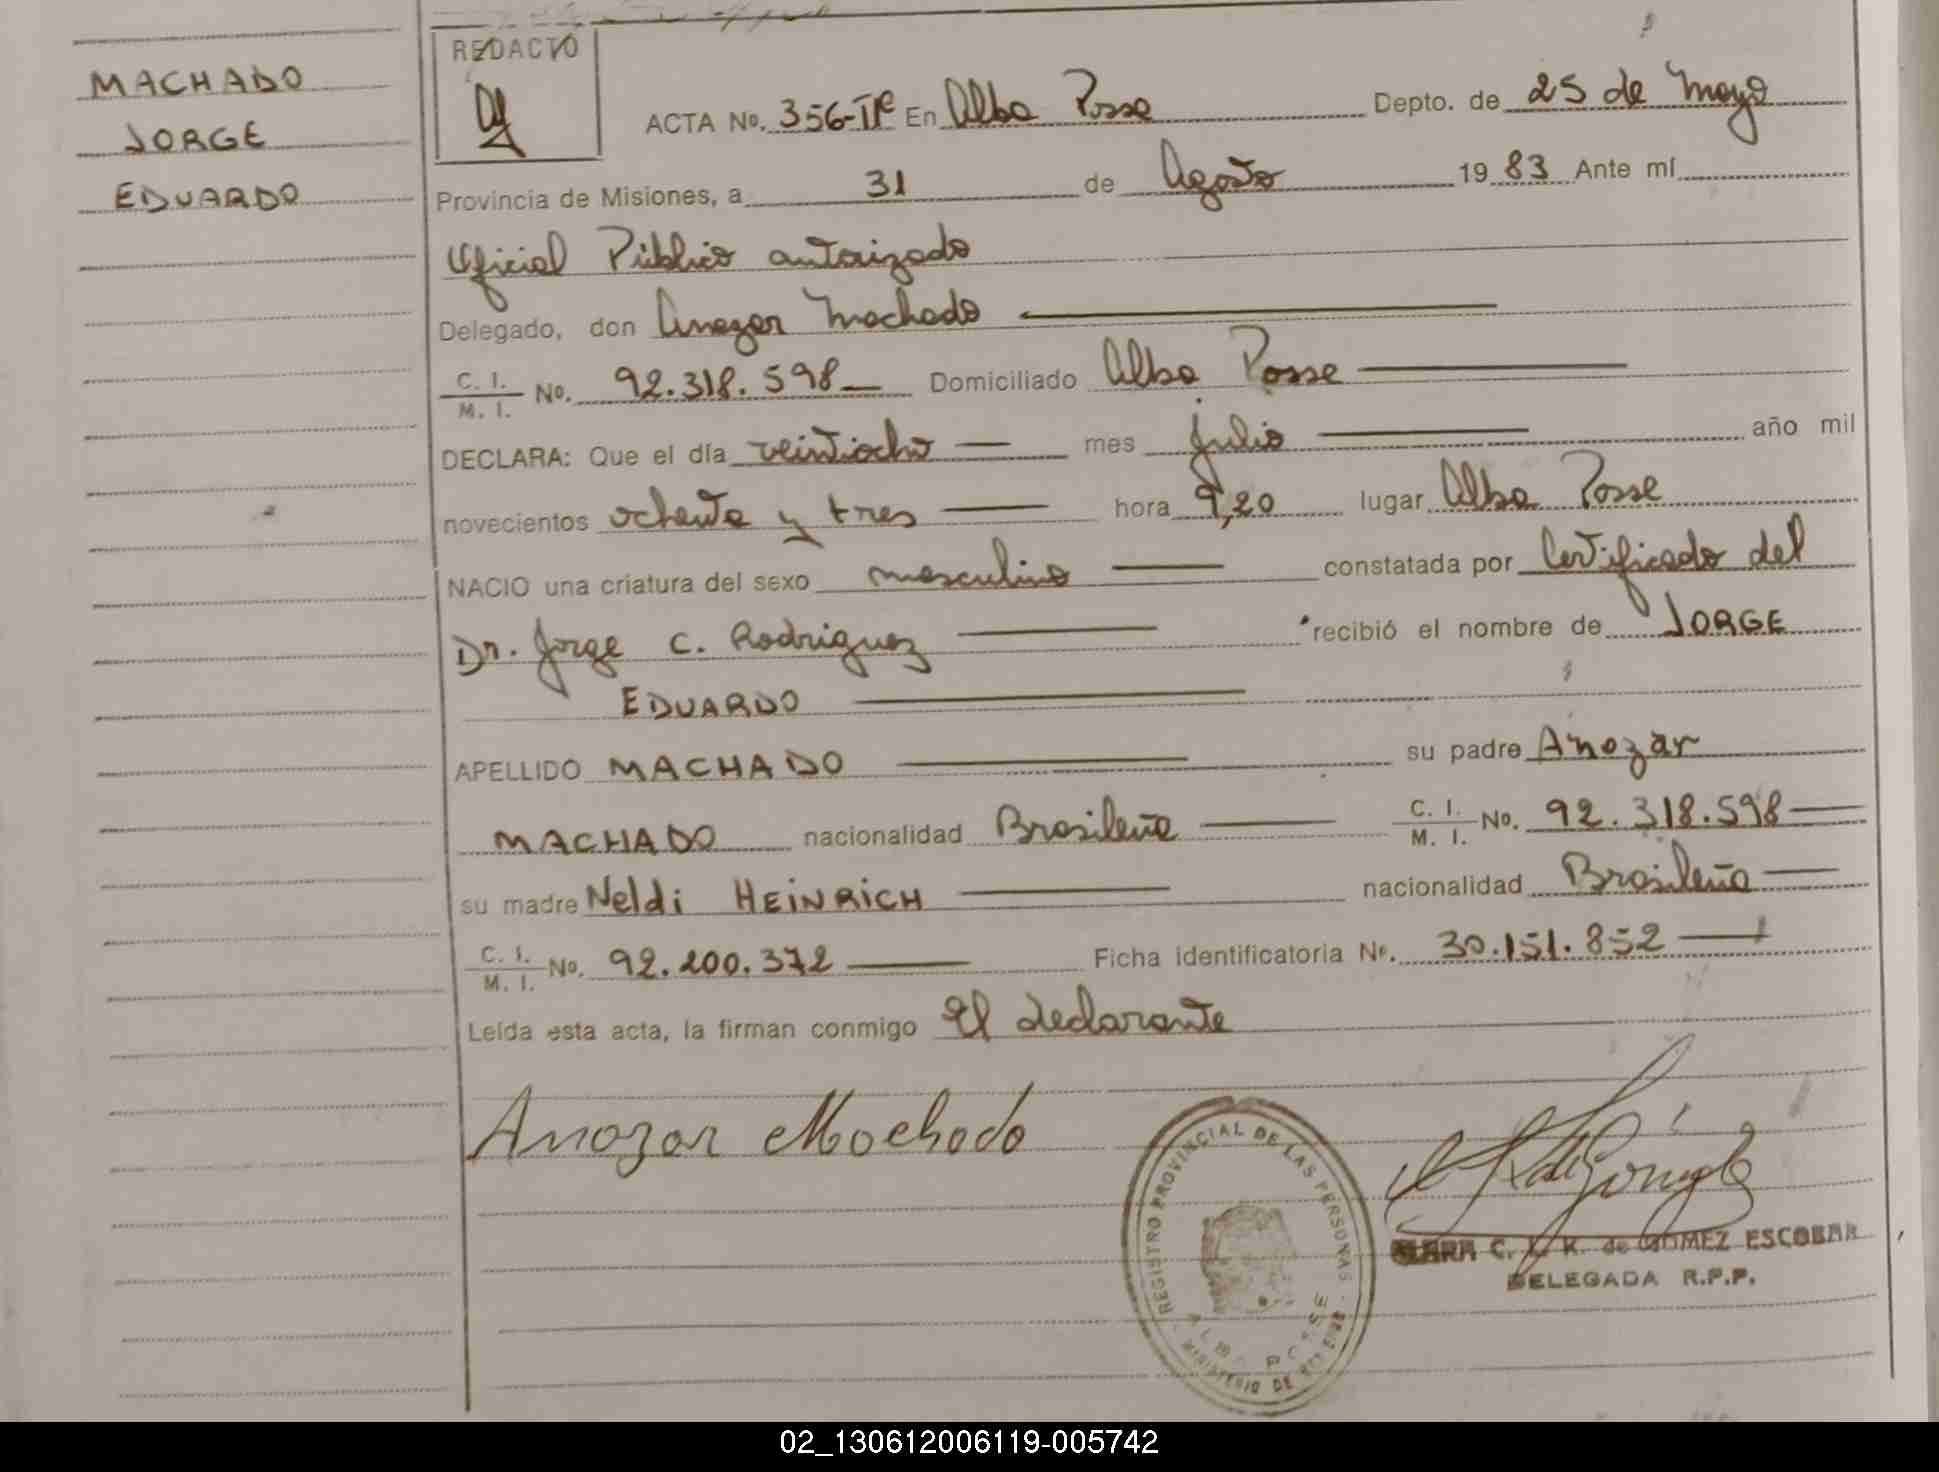 MACHADO
JORGE
EDUARDO
REDACTO
ACTA No. 356-IIº En Alba Posse Depto. de 25 de Mayo
Provincia de Misiones, a 31 de Agosto 19 83 Ante mí
Oficial Público autorizado
Delegado, don Anozor Machado
C. I. / M. I. No. 92.318.598 Domiciliado Alba Posse
DECLARA: Que el día veintiocho mes julio año mil
novecientos ochenta y tres hora 9,20 lugar Alba Posse
NACIO una criatura del sexo masculino constatada por Certificado del
Dr. Jorge C. Rodriguez recibió el nombre de JORGE
EDUARDO
APELLIDO MACHADO su padre Anozar
MACHADO nacionalidad Brasileña C. I. / M. I. No. 92.318.598
su madre Neldi HEINRICH nacionalidad Brasileña
C. I. / M. I. No. 92.200.372 Ficha identificatoria Nº. 30.151.852
Leída esta acta, la firman conmigo El declarante
Anozor Machado
REGISTRO PROVINCIAL DE LAS PERSONAS
ALBA POSSE
MINISTERIO DE
C. L. K. de GOMEZ ESCOBAR
DELEGADA R.P.P.
02_130612006119-005742